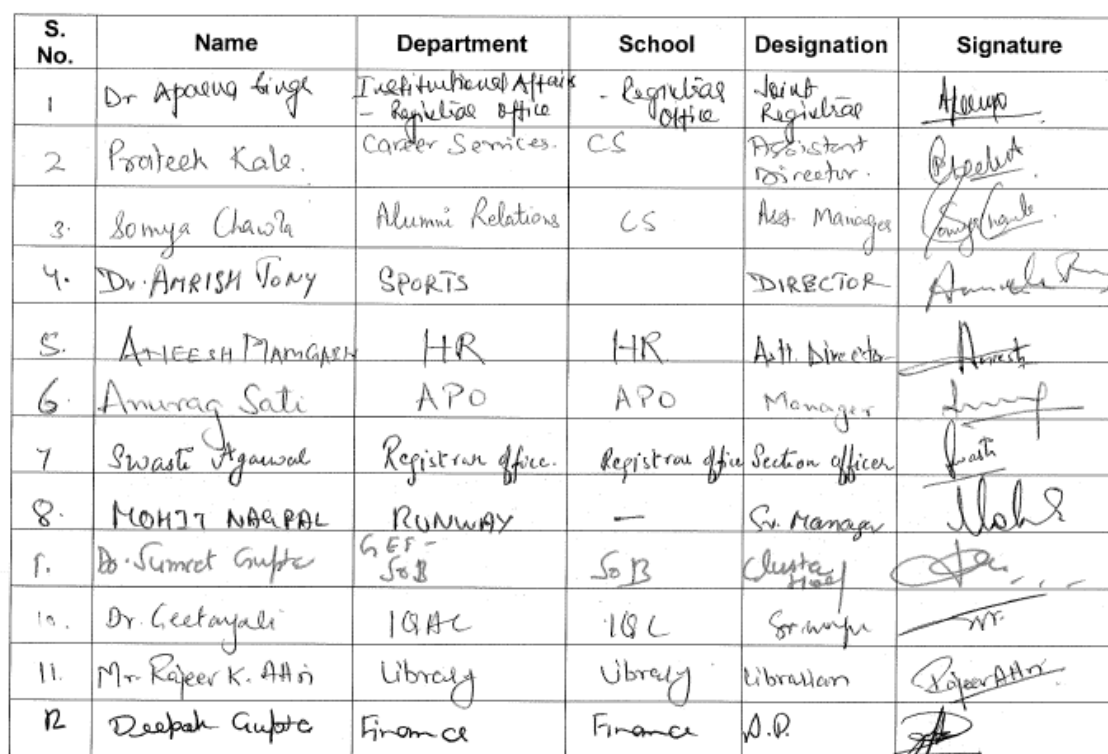 S. No. Name Department School Designation Signature
1 Dr Aparna Singh Institutional Affairs - Registrar Office - Registrar Office Joint Registrar
2 Prateek Kale. Career Services. CS Assistant Director.
3. Somya Chawla Alumni Relations CS Ass. Manager
4. Dr. AMRISH TONY SPORTS DIRECTOR
5. HR HR Astt. Director
6. Anurag Sati APO APO Manager
7 Swasti Agarwal Registrar office. Registrar office Section officer
8. MOHIT NAGPAL RUNWAY — Sr. Manager
9. Dr. Sumeet Gupta GEF - SoB SoB Cluster Head
10. Dr. Geetanjali IQAC
11. Mr. Rajeev K. Attri Library Library Librarian Rajeev Attri
12 Deepak Gupta Finance Finance